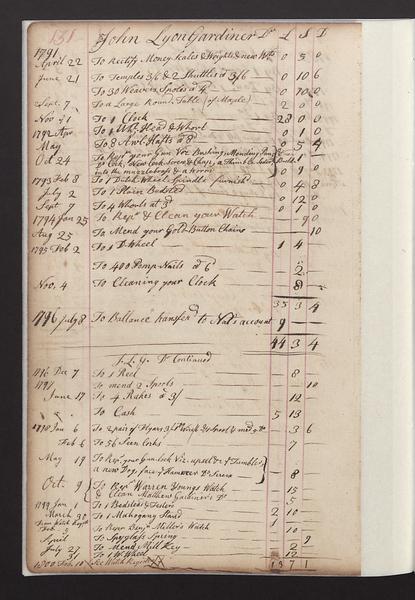 131 John Lyon Gardiner Dr £ S D
1791
April 22 To Rectify Money Scales & Weights & new Wts 0 5 0
June 21 To Temples 3/6 & 2 Shuttles a 3/6 0 10 6
To 30 Weavers Spools a 4 0 10 0
Sept. 7 To a Large Round Table (of Maple) 2 0 0
Nov 21 To 1 Clock 28 0 0
1792 Apr To 1 Whl Head & Whorl 0 1 0
May To 8 Awl Hafts a 8 0 5 4
Oct 24 To Repr your Gun Viz. Bushing, Mending
New Cock Screw & Chops, a Thumb
into the muzzle 0 9 0
1793 Feb 8 To 1 Dutch Wheele Spindle furnish 0 4 8
July 2 To 1 Plain Bedsted 0 12 0
Sept 7 To 4 Whorls at 3 0 1 0
1794 Jan 25 To Repr & Clean your Watch 9 0
Aug 25 To Mend your Gold Button Chains 10
1795 Feb 2 To 1 D Wheel 1 4
To 400 Pomp Nails a 6 2
Nov. 4 To Cleaning your Clock 8
35 3 4
1796 July 8 To Ballance transfer'd to Nat's account 9
44 3 4
J. L. G. Dr Continued
1796 Dec 7 To 1 Reel 8
1797 To mend 2 Spools 10
June 17 To 4 Rakes a 3/ 12
To Cash 5 13
1798 Jan 6 To 2 pair of Flyers 3 6
Feb 6 To 56 Seen Corks 7
May 19 To Repr your Gun lock Viz. Tumbler,
a new Dog, face Hammer Do Screws 8
Oct. 9 To Repr Warren Youngs Watch 15
& Clean Mathew Gardiners Do 5
1799 Jan 1 To 1 Bedsted & Testers 2
March 30 To 1 Mahogany Stand 2 10
To Reper Benjn Miller's Watch 10
April To Spyglass Spring 9
July 27 To Mend Mill Key 2
31 To 1 W. Wheel 12
1800 Feb 10 See Watch Repr 13 7 1